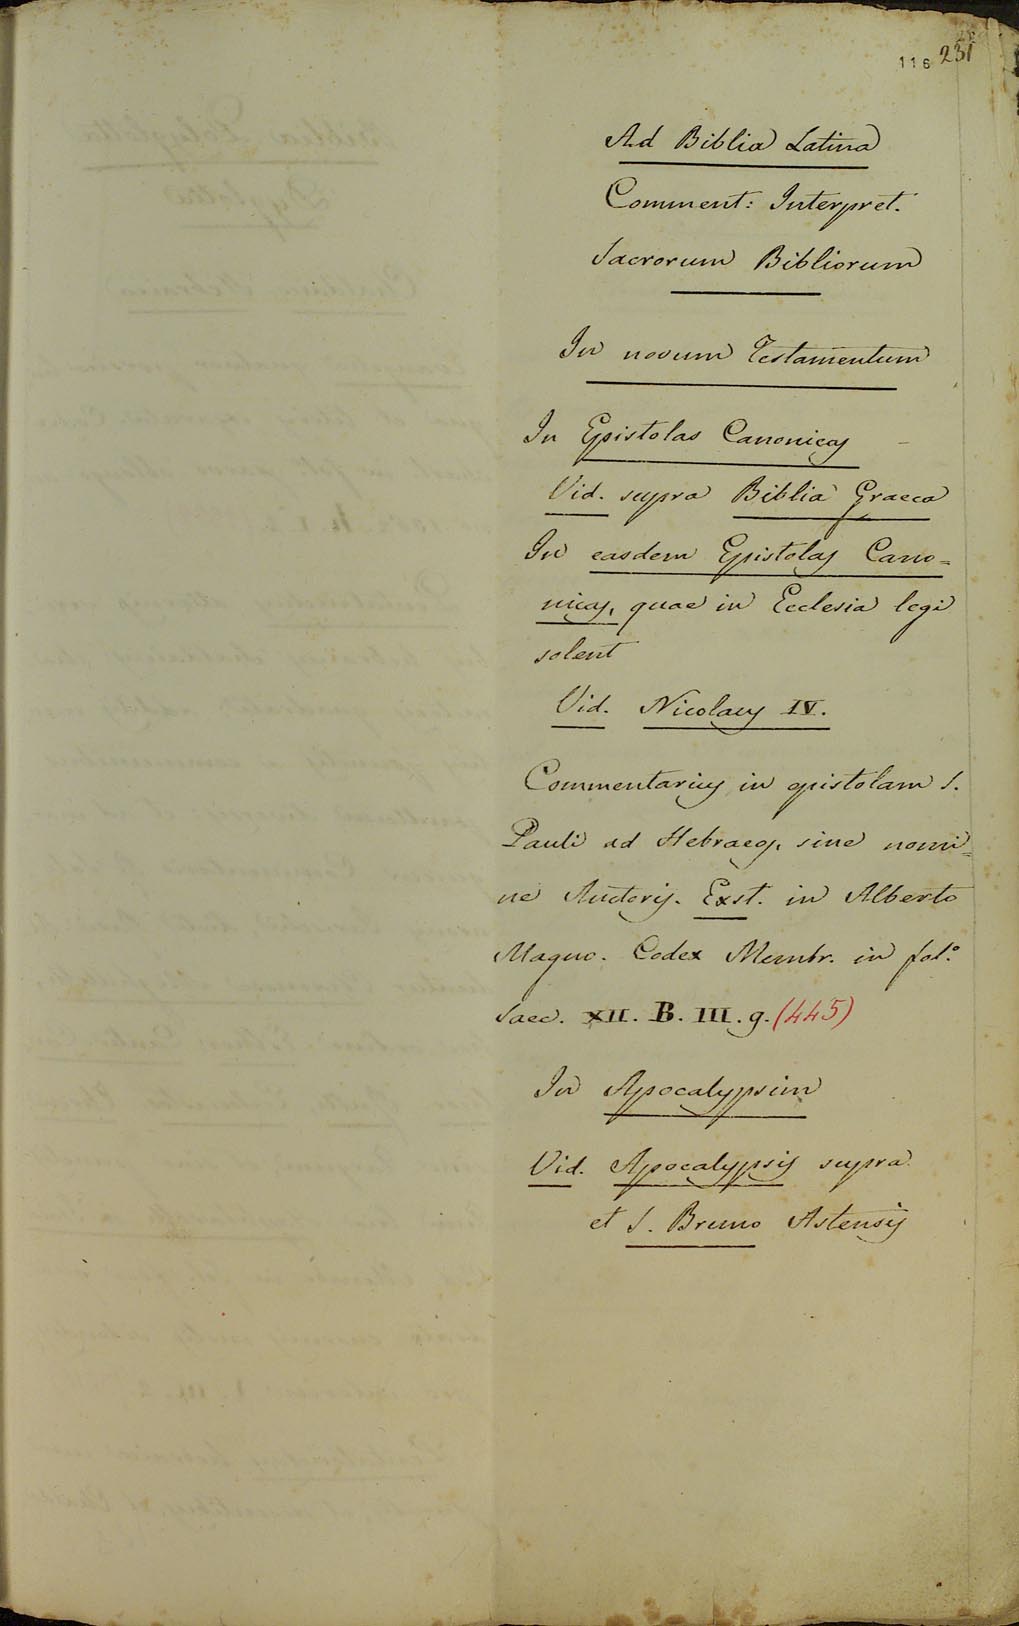 116 231
Ad Biblia Latina
Comment: Interpret.
Sacrorum Bibliorum
In novum Testamentum
In Epistolas Canonicas
Vid. supra Biblia Graeca
In easdem Epistolas Cano=
nicas, quae in Ecclesia legi
solent
Vid. Nicolaus IV.
Commentarius in epistolam S.
Pauli ad Hebraeos, sine nomi=
ne Auctoris. Exst. in Alberto
Magno. Codex Membr. in fol.º
Saec. XII. B. III. g. (445)
In Apocalypsim
Vid. Apocalypsis supra
et S. Bruno Astensis